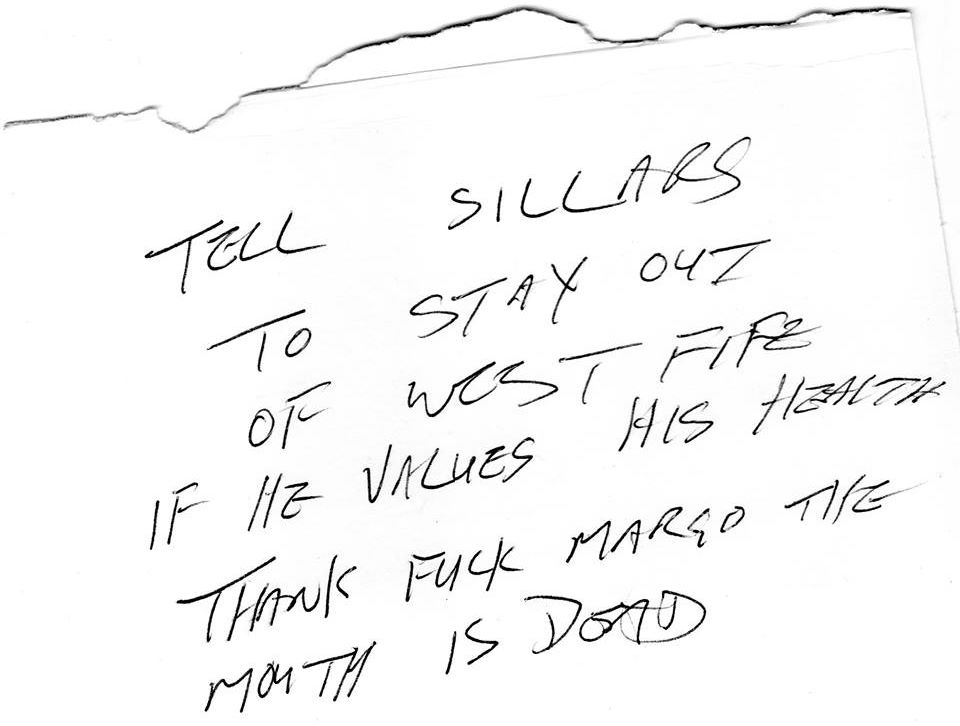 TELL SILLARS
TO STAY OUT
OF WEST FIFE
IF HE VALUES HIS HEALTH
THANK FUCK MARGO THE
MOUTH IS DEAD